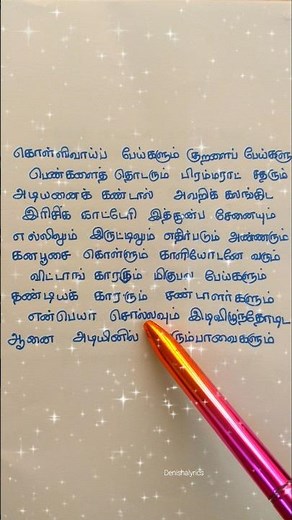 கொள்ளிவாய்ப் பேய்களும் குறளைப் பேய்களு
பெண்களைத் தொடரும் பிரம்மராட் சதரும்
அடியனைக் கண்டால் அலறிக் கலங்கிட
இரிசிக் காட்டேரி இத்துன்ப சேனையும்
எல்லிலும் இருட்டிலும் எதிர்படும் அண்ணரும்
கனபூசை கொள்ளும் காளியோடனே வரும்
விட்டாங் காரரும் மிகுபல பேய்களும்
தண்டியக் காரரும் சண்டாளர்களும்
என்பெயர் சொல்லவும் இடிவிழுந்தோடிட
ஆனை அடியினில் ரும்பாவைகளும்
Denishalyrics